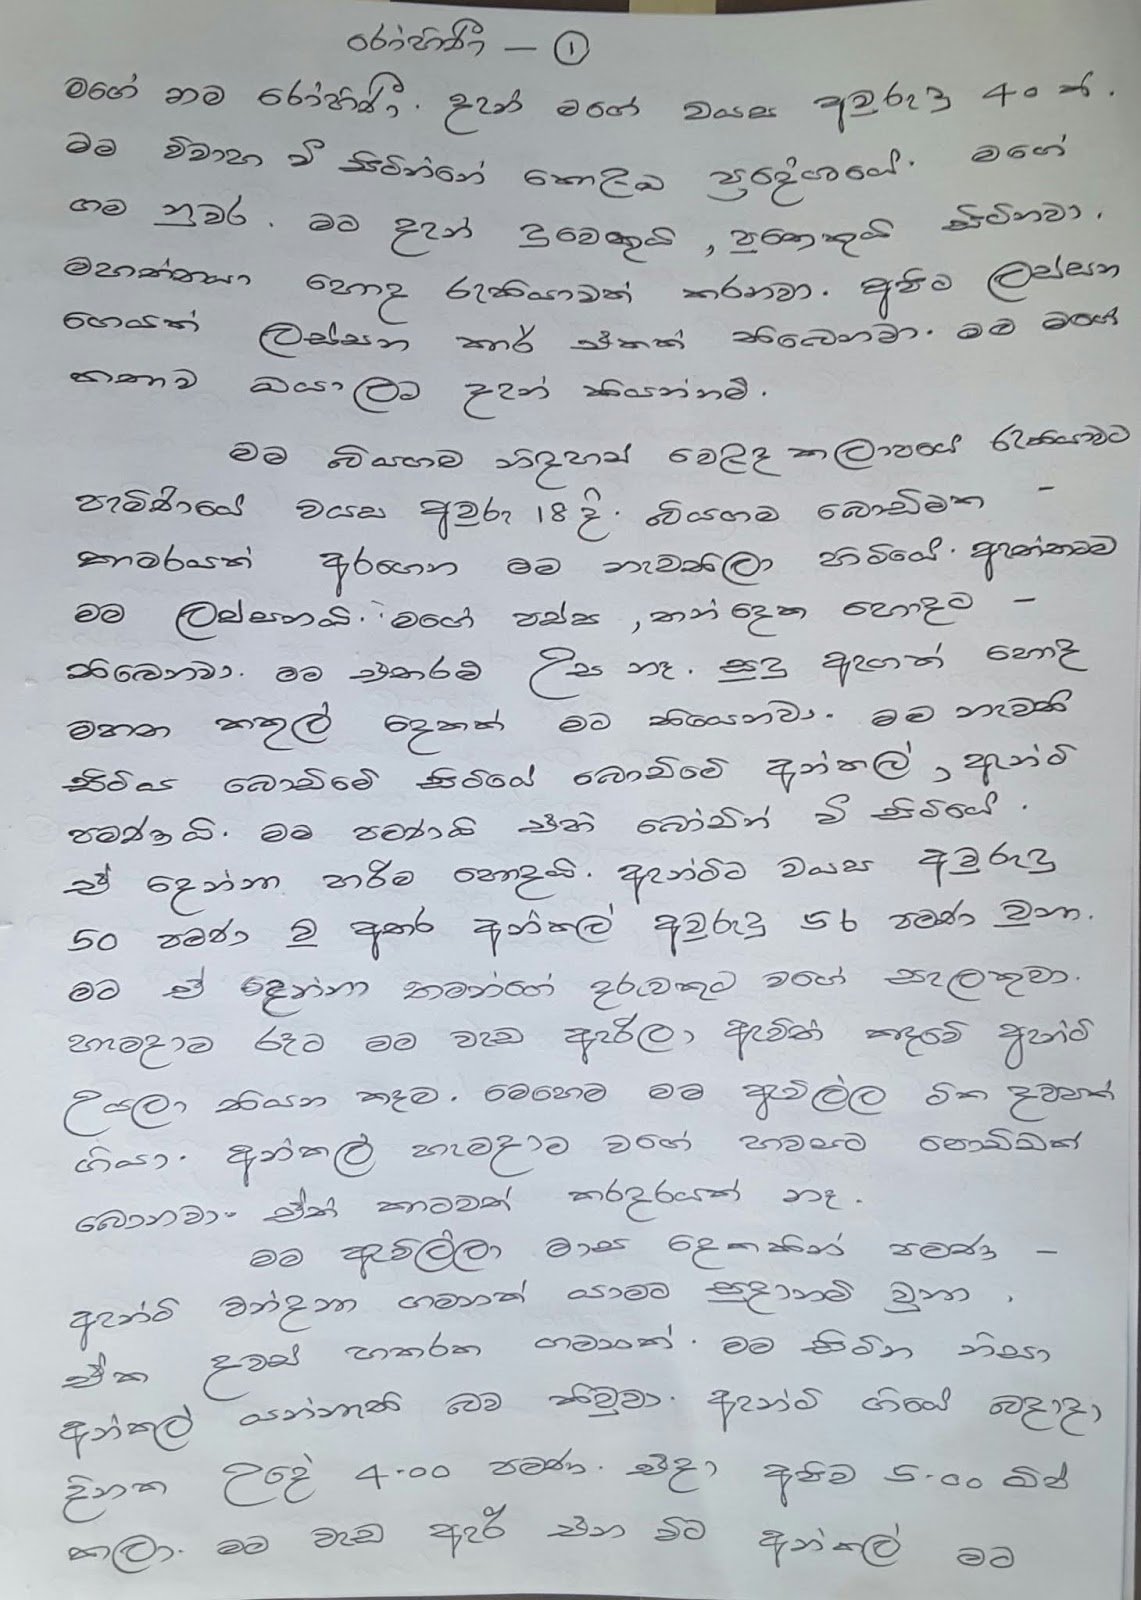 රෝහිණී - ①
මගේ නම රෝහිණී. දැන් මගේ වයස අවුරුදු 40 ක්.
මම විවාහ වී සිටින්නේ කොළඹ ප්‍රදේශයේ. මගේ
ගම නුවර. මට දැන් දුවෙකුයි, පුතෙකුයි සිටිනවා.
මහත්තයා හොඳ රැකියාවක් කරනවා. අපිට ලස්සන
ගෙයක් ලස්සන කාර් එකක් තිබෙනවා. මම මගේ
කතාව ඔයාලට දැන් කියන්නම්.
මම බියගම නිදහස් වෙළඳ කලාපයේ රැකියාවට
පැමිණියේ වයස අවුරු 18 දී. බියගම බොඩිමක -
කාමරයක් අරගෙන මම නැවතිලා හිටියේ. ඇත්තටම
මම ලස්සනයි. මගේ පස්ස, තන් දෙක හොඳට -
තිබෙනවා. මම එතරම් උස නෑ. සුදු ඇඟක් හොඳ
මහත කකුල් දෙකක් මට තියෙනවා. මම නැවතී
සිටිය බොඩිමේ සිටියේ බොඩිමේ අන්කල්, ඇන්ටි
පමණයි. මම පමණයි එහි බෝඩින් වී සිටියේ.
ඒ දෙන්නා හරිම හොඳයි. ඇන්ටිට වයස අවුරුදු
50 පමණ වූ අතර අන්කල් අවුරුදු 56 පමණ වුනා.
මට ඒ දෙන්නා තමන්ගේ දරුවකුට වගේ සැලකුවා.
හැමදාම රෑට මම වැඩ ඇරිලා ඇවිත් කෑවේ ඇන්ටි
උයලා තියන කෑම. මෙහෙම මම ඇවිල්ල ටික දවසක්
ගියා. අන්කල් හැමදාම වගේ හවසට පොඩ්ඩක්
බොනවා. ඒත් කාටවත් කරදරයක් නෑ.
මම ඇවිල්ලා මාස දෙකකින් පමණ -
ඇන්ටි වන්දනා ගමනක් යාමට සූදානම් වුනා.
ඒක දවස් හතරක ගමනක්. මම සිටින නිසා
අන්කල් යන්නැති බව කිවුවා. ඇන්ටි ගියේ බදාදා
දිනක උදේ 4.00 පමණ. එදා අපිට 5.00 ඕෆ්
කලා. මම වැඩ ඇරී එන විට අන්කල් මට